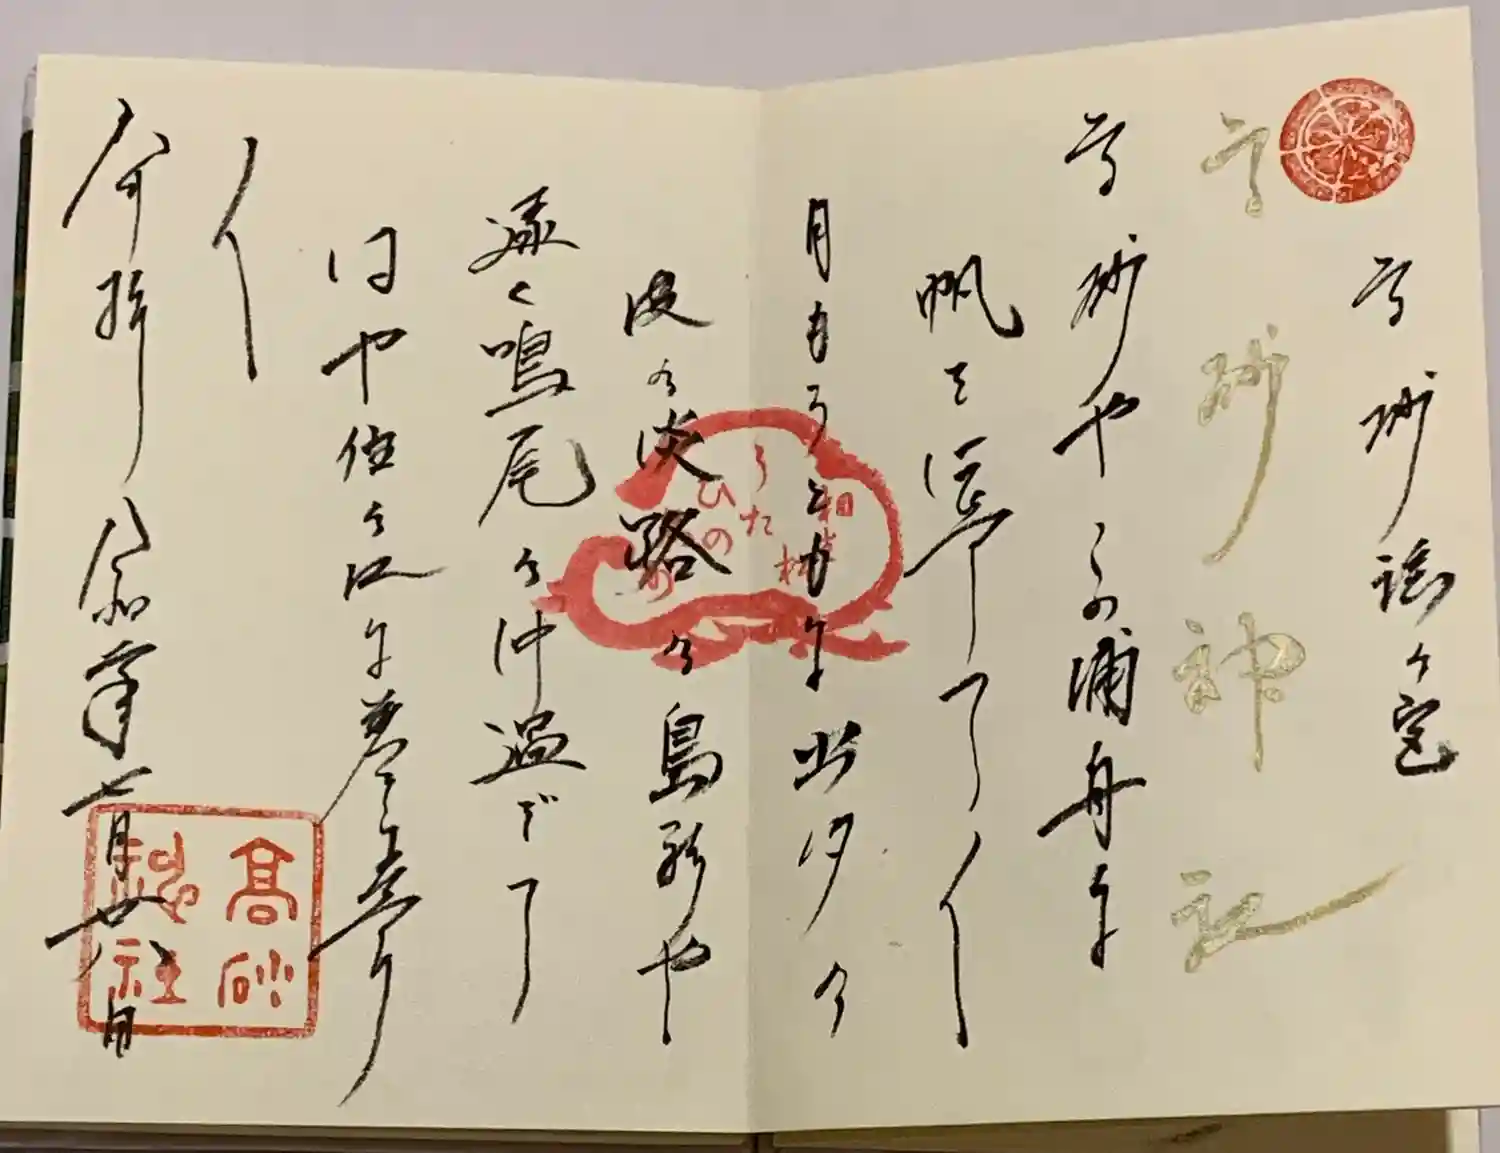 高砂謡の宮
高砂神社
高砂やこの浦舟に
帆を揚げて〱
月もろともに出汐の
波の淡路の島影や
遠く鳴尾の沖過ぎて
はや住の江に着きにけり
〱
奉拝 令和 年七月廿八日
相生松
うた
ひの
高砂
神社